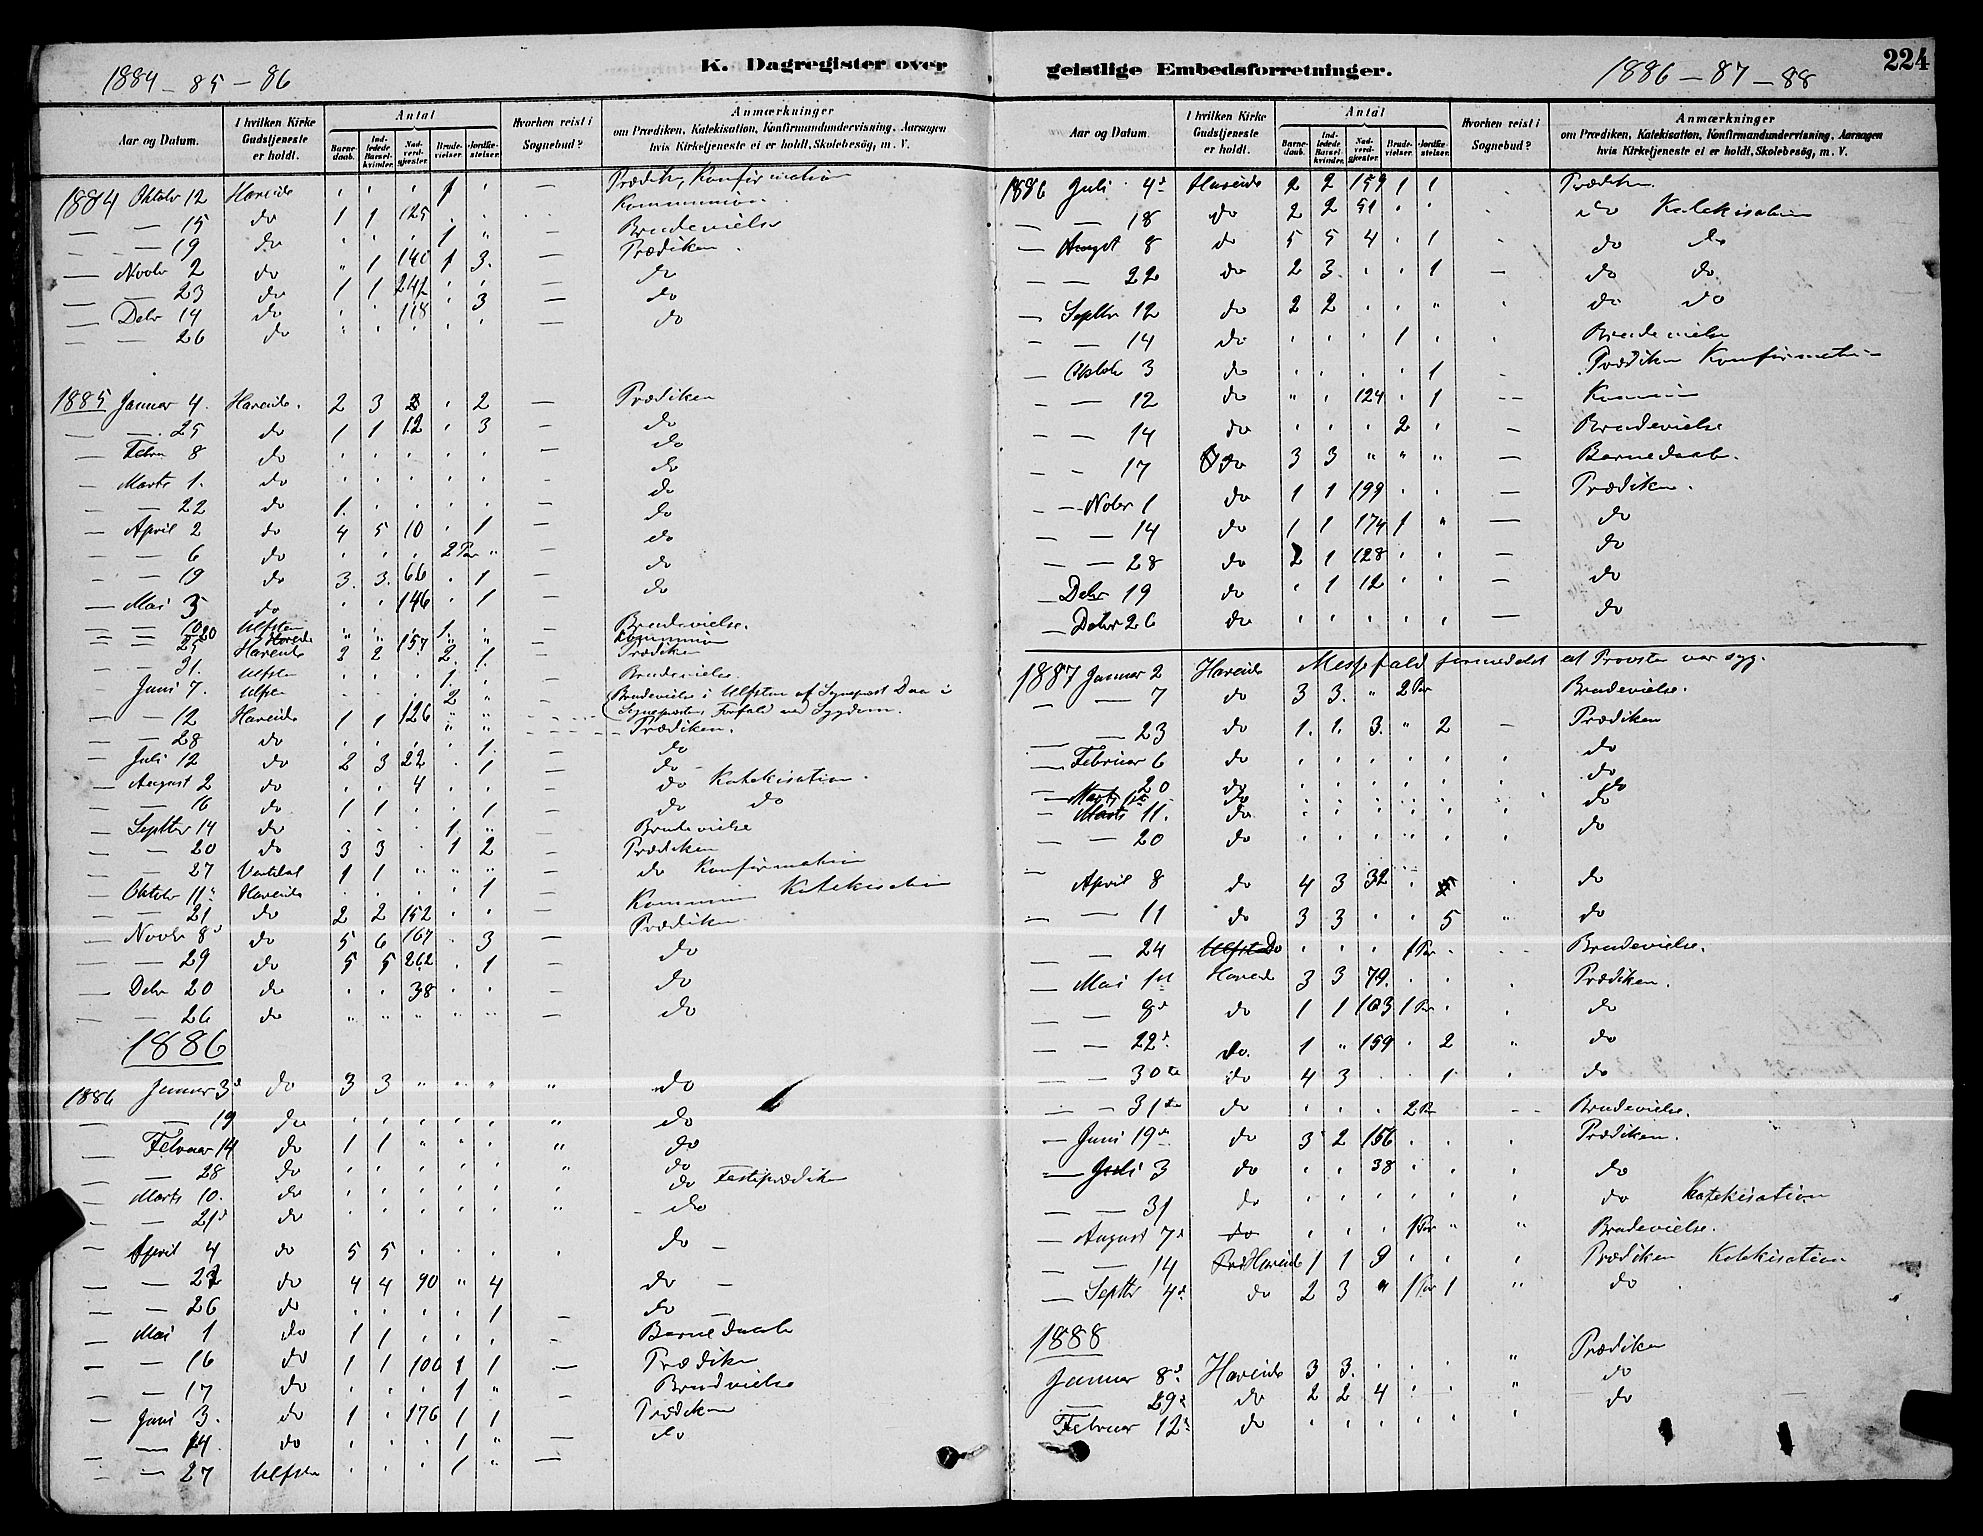 1884 - 85 - 86
K. Dagregister over
Aar og Datum. I hvilken Kirke Gudstjeneste er holdt. Antal Barnedaab. Indledede Barselkvinder. Nadverdgjester. Brudevielser. Jordfæstelser. Hvorhen reist i Sognebud? Anmærkninger om Prædiken, Katekisation, Konfirmandundervisning, Aarsagen hvis Kirketjeneste ei er holdt, Skolebesøg, m. V.
1884 Oktobr 12 Hareide " " " 1 " — Prædik, Konfirmation
— — 15 do 1 1 125 " " — Kommunion
— — 19 do " " " 1 " — Brudevielse
— Novbr 2 do " 1 140 1 3. — Prædiken
— — 23 do 1 1 242 " " — do
— Debr 14 do " " 118 " 3 — do
— — 26 do " " " " " — do
1885 Januar 4. Hareide. 2 3 " 2 — Prædiken
— — 25 do 1 1 12 " 3 — do
— Febru 8 do " " " " " — do
— Marts 1. do " " " " " — do
— — 22 do 1. " " " " — do
— April 2 do 4 5 10 " 1 — do
— — 6 do " " " 2 Par " — do
— — 19 do 3. 3. 66 " 1 — do
— Mai 3 do " " 146 " 1 — do
— — 10 Ulfsten " " " 1. " Brudevielse.
— — 20 Hareide " " 157 " " Kommunion
— — 25 Hareide 2 2 " 2. 1. — Prædiken
— — 31. Ulfsten " " " 1. " — Brudevielse.
— Juni 7. Ulfsten " " " 2 " — Brudevielse i Ulfsten af Sognepræst Daa i
Sognepræstens Forfald ved Sygdom.
— — 12 Hareide 1 1 126 " " Prædiken.
— — 28 do " " " " 1. — do
— Juli 12 do 2 3 22 " 1 — do
— August 2 do " " 4 " " — do Katekisation.
— — 16 do 1 1 " " 1 — do do
— Septbr 14 do " " " 1 " — Brudevielse
— — 20 do 3 3 " 1 2 — Prædiken
— — 27 1 1 " " " — do Konfirmation
— Oktobr 11 Hareide " " " " 1 — Katekisation
— — 21 do 2 2 152 " " — Kommunion
— Novbr 8 do 5 6 167 " 3 — Prædiken
— — 29 do 5 5 262 " 1 — do
— Debr 20 do " " 38 " " — do
— — 26 do " " " " " — do
1886
1886 Januar 3 do 3 3 " " " " do
— — 19 do " " " " " " do
— Februar 14 do 1 1 " " " " do
— — 28 do " " " " " " do
— Marts 10. do " " " " " " do Festprædiken
— — 21 do " " " " " " do
— April 4 do 5 5 " " " " do —
— — 22 do 4 4 90 " 4 do —
— — 26 do " " " " 1 — do —
— Mai 1 do 1 1 " " " — Barnedaab
— — 16 do 1 1 100 1 1 — Prædiken
— — 17 do " " " 1 " — Brudvielse
— Juni 3. do 1 " 176 1 1 — Prædiken
— — 24. do " " " 1 " — do
— — 27 Ulfsten " " " 1 " —
geistlige Embedsforretninger. 1886 - 87 - 88 224
Aar og Datum. I hvilken Kirke Gudstjeneste er holdt. Antal Barnedaab. Indledede Barselkvinder. Nadverdgjester. Brudevielser. Jordfæstelser. Hvorhen reist i Sognebud? Anmærkninger om Prædiken, Katekisation, Konfirmandundervisning, Aarsagen hvis Kirketjeneste ei er holdt, Skolebesøg, m. V.
1886 Juli 4 Hareide 2 2 159 1 1 " Prædiken.
— 18 do 2 2 51 " " " do Katekisation
— August 8 do 5 5 4 " 1 do do
— — 22 do 2 3. " " 1 — do do
— Septbr 12 do 2 2 " " " " do do
— — 14 do " " " 1 " " Brudevielse
— Oktobr 3 do " " " " 1 Prædiken Konfirmation
— — 12 do " " 124 " 1 -- Kommunion
— — 14 do " " " 2 " — Brudevielse
— — 17 do 3 3 " " " — Barnedaab.
— Nobr 1 do 1 1 199 " " — Prædiken.
— — 14 do 1 1 174 1 " — do
— — 28 do 2 1 128 " " — do
— Debr 19 do " 1 12 " " — do
— Debr 26 do " " " " " — do
1887 Januar 2 Hareide Messefald formedelst at Provsten var syg.
— — 7 do 3 3. " 2 Par Brudevielse.
— — 23 do 1. 1. 3. " 2 — Prædiken
— Februar 6 do " " " " " " do
— — 20 do " " " " " " do
— Marts do " " " " " " do
— Marts 11. do " " " " " " do
— — 20 do " " " " " " do
April 8 do 4 3 32 " " do
— — 11 do 3 3 " " 5 " do
— — 24 Do " " " 1 Par " Brudevielse.
— Mai 1st Hareide 3 3 79. " " " Prædiken.
— — 8 do 1 1 103 1 Par " do
— — 22 do. 1 " 159 " 2 " do
— — 30te do 4 3 " 1 " do
— — 31te do " " " 2 Par -- Brudevielse.
— Juni 19 do 3 2 156 " " " Prædiken.
— Juli 3 do " " 38 " " " do
— — 31 do " " " " " " do Katekisation
— August 7 do " " " 1 Par " " Brudevielse.
— — 14 Hareide 1 1 9 " " " Prædiken Katekisation
— Septbr 4 do 2 3 " 1 Par 1 " do
1888
Januar 8 Hareide 3 3. " " " " Prædiken
— 29 do 2 2 4 " " " do
Februar 12 do " " " " " " do